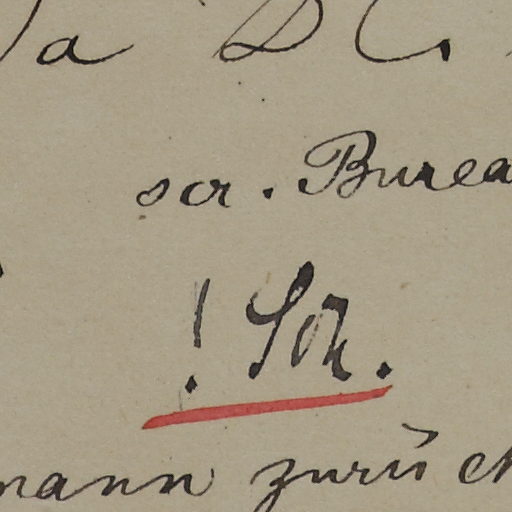 a D C.
scr. Burea
! Sch.
mann zurück